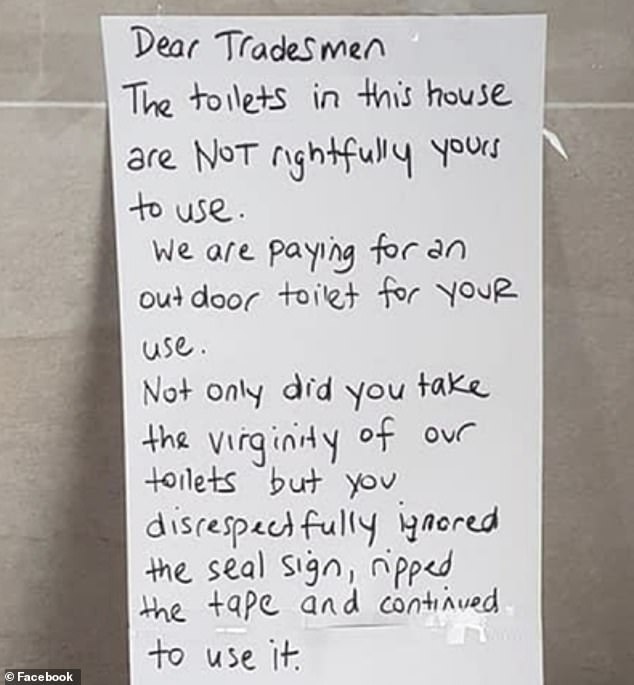 Dear Tradesmen
The toilets in this house
are NOT rightfully yours
to use.
We are paying for an
outdoor toilet for YOUR
use.
Not only did you take
the virginity of our
toilets but you
disrespectfully ignored
the seal sign, ripped
the tape and continued
to use it.
© Facebook